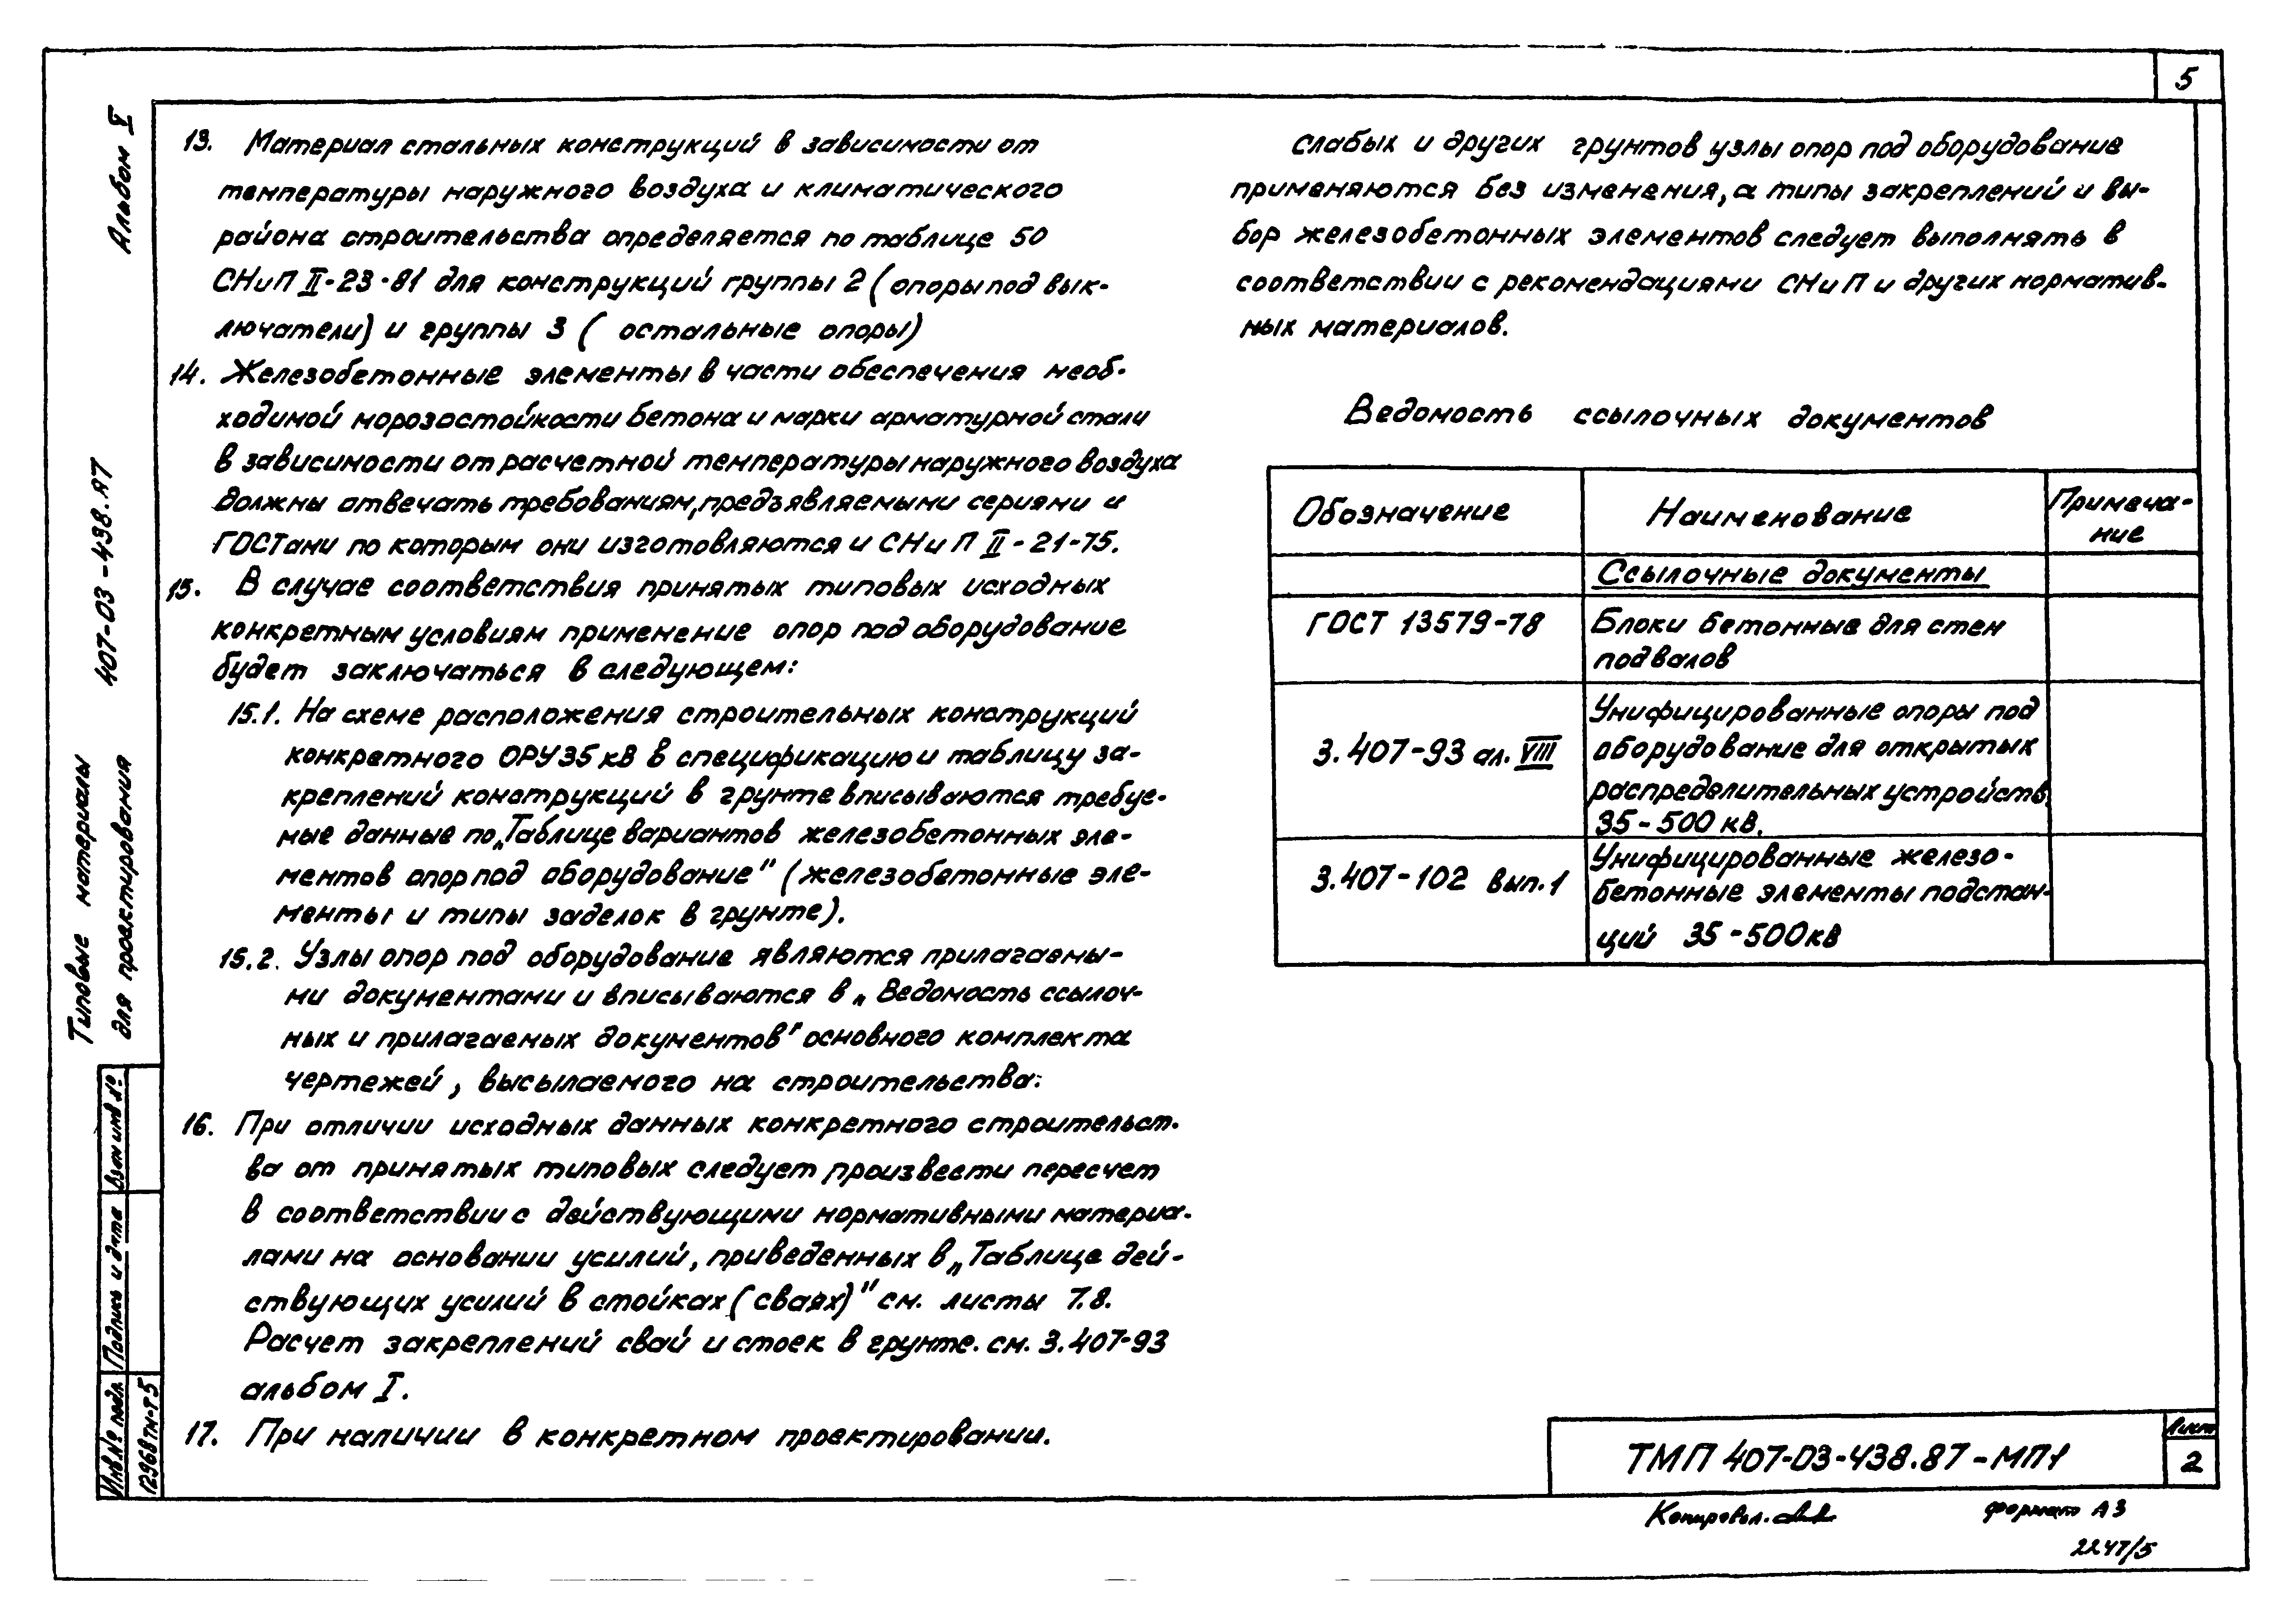 5
13. Материал стальных конструкций в зависимости от
температуры наружного воздуха и климатического
района строительства определяется по таблице 50
СНиП II-23-81 для конструкций группы 2 (опоры под вык-
лючатели) и группы 3 ( остальные опоры)
14. Железобетонные элементы в части обеспечения необ-
ходимой морозостойкости бетона и марки арматурной стали
в зависимости от расчетной температуры наружного воздуха
должны отвечать требованиям, предъявляемыми сериями и
ГОСТами по которым они изготовляются и СНиП II-21-75.
15. В случае соответствия принятых типовых исходных
конкретным условиям применение опор под оборудование
будет заключаться в следующем:
15.1. На схеме расположения строительных конструкций
конкретного ОРУ 35 кВ в спецификацию и таблицу за-
креплений конструкций в грунте вписываются требуе-
мые данные по „Таблице вариантов железобетонных эле-
ментов опор под оборудование" (железобетонные эле-
менты и типы заделок в грунте).
15.2. Узлы опор под оборудование являются прилагаемы-
ми документами и вписываются в „Ведомость ссылоч-
ных и прилагаемых документов" основного комплекта
чертежей, высылаемого на строительства.
16. При отличии исходных данных конкретного строительст-
ва от принятых типовых следует произвести пересчет
в соответствии с действующими нормативными материа-
лами на основании усилий, приведенных в „Таблице дей-
ствующих усилий в стойках (сваях)" см. листы 7.8.
Расчет закреплений свай и стоек в грунте. см. 3.407-93
альбом I.
17. При наличии в конкретном проектировании.
слабых и других грунтов узлы опор под оборудование
применяются без изменения, а типы закреплений и вы-
бор железобетонных элементов следует выполнять в
соответствии с рекомендациями СНиП и других норматив-
ных материалов.
Ведомость ссылочных документов
Обозначение Наименование Примеча-
ние
Ссылочные документы
ГОСТ 13579-78 Блоки бетонные для стен
подвалов
Унифицированные опоры под
3.407-93 ал. VIII оборудование для открытых
распределительных устройств
35-500 кВ.
Унифицированные железо-
3.407-102 вып.1 бетонные элементы подстан-
ций 35-500кВ
Альбом V
407-03-438.87
Типовые материалы
для проектирования
Взам инв №
Подпись и дата
Инв.№ подл.
12968тм-т5
ТМП 407-03-438.87-МП1
Лист
2
Копировал.
формат А3
2247/5